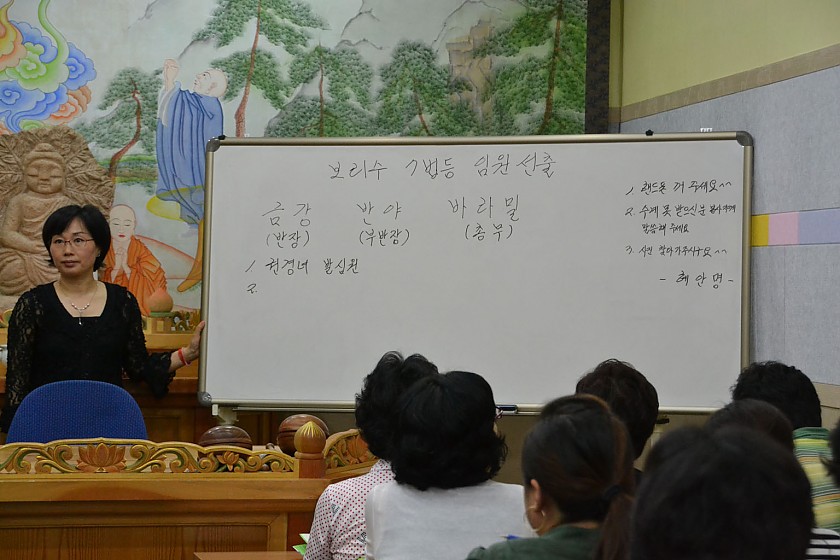 보리수 7법등 임원선출
금강 반야 바라밀
(반장) (부반장) (총무)
1. 권경녀 발심원
2.
1. 핸드폰 꺼 주세요^^
2. 수계 못 받으신분
말씀해 주세요
3. 사진 찾아가주시구요^^
- 혜안명 -